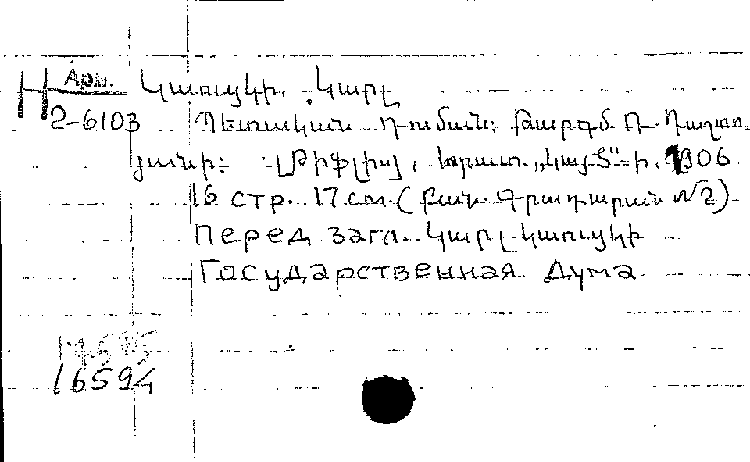 Н Арм. Կաուցկի, Կարլ
2-6103 Պետական դուման: Թարգմ. Ռ. Դաշտո
յանի: Թիֆլիս, հրատ. „կայծ"-ի, 1906.
16 стр. 17 см. (Բան. Գրադարան №2)
Перед загл. Կարլ Կաուցկի
Государственная Дума
16594